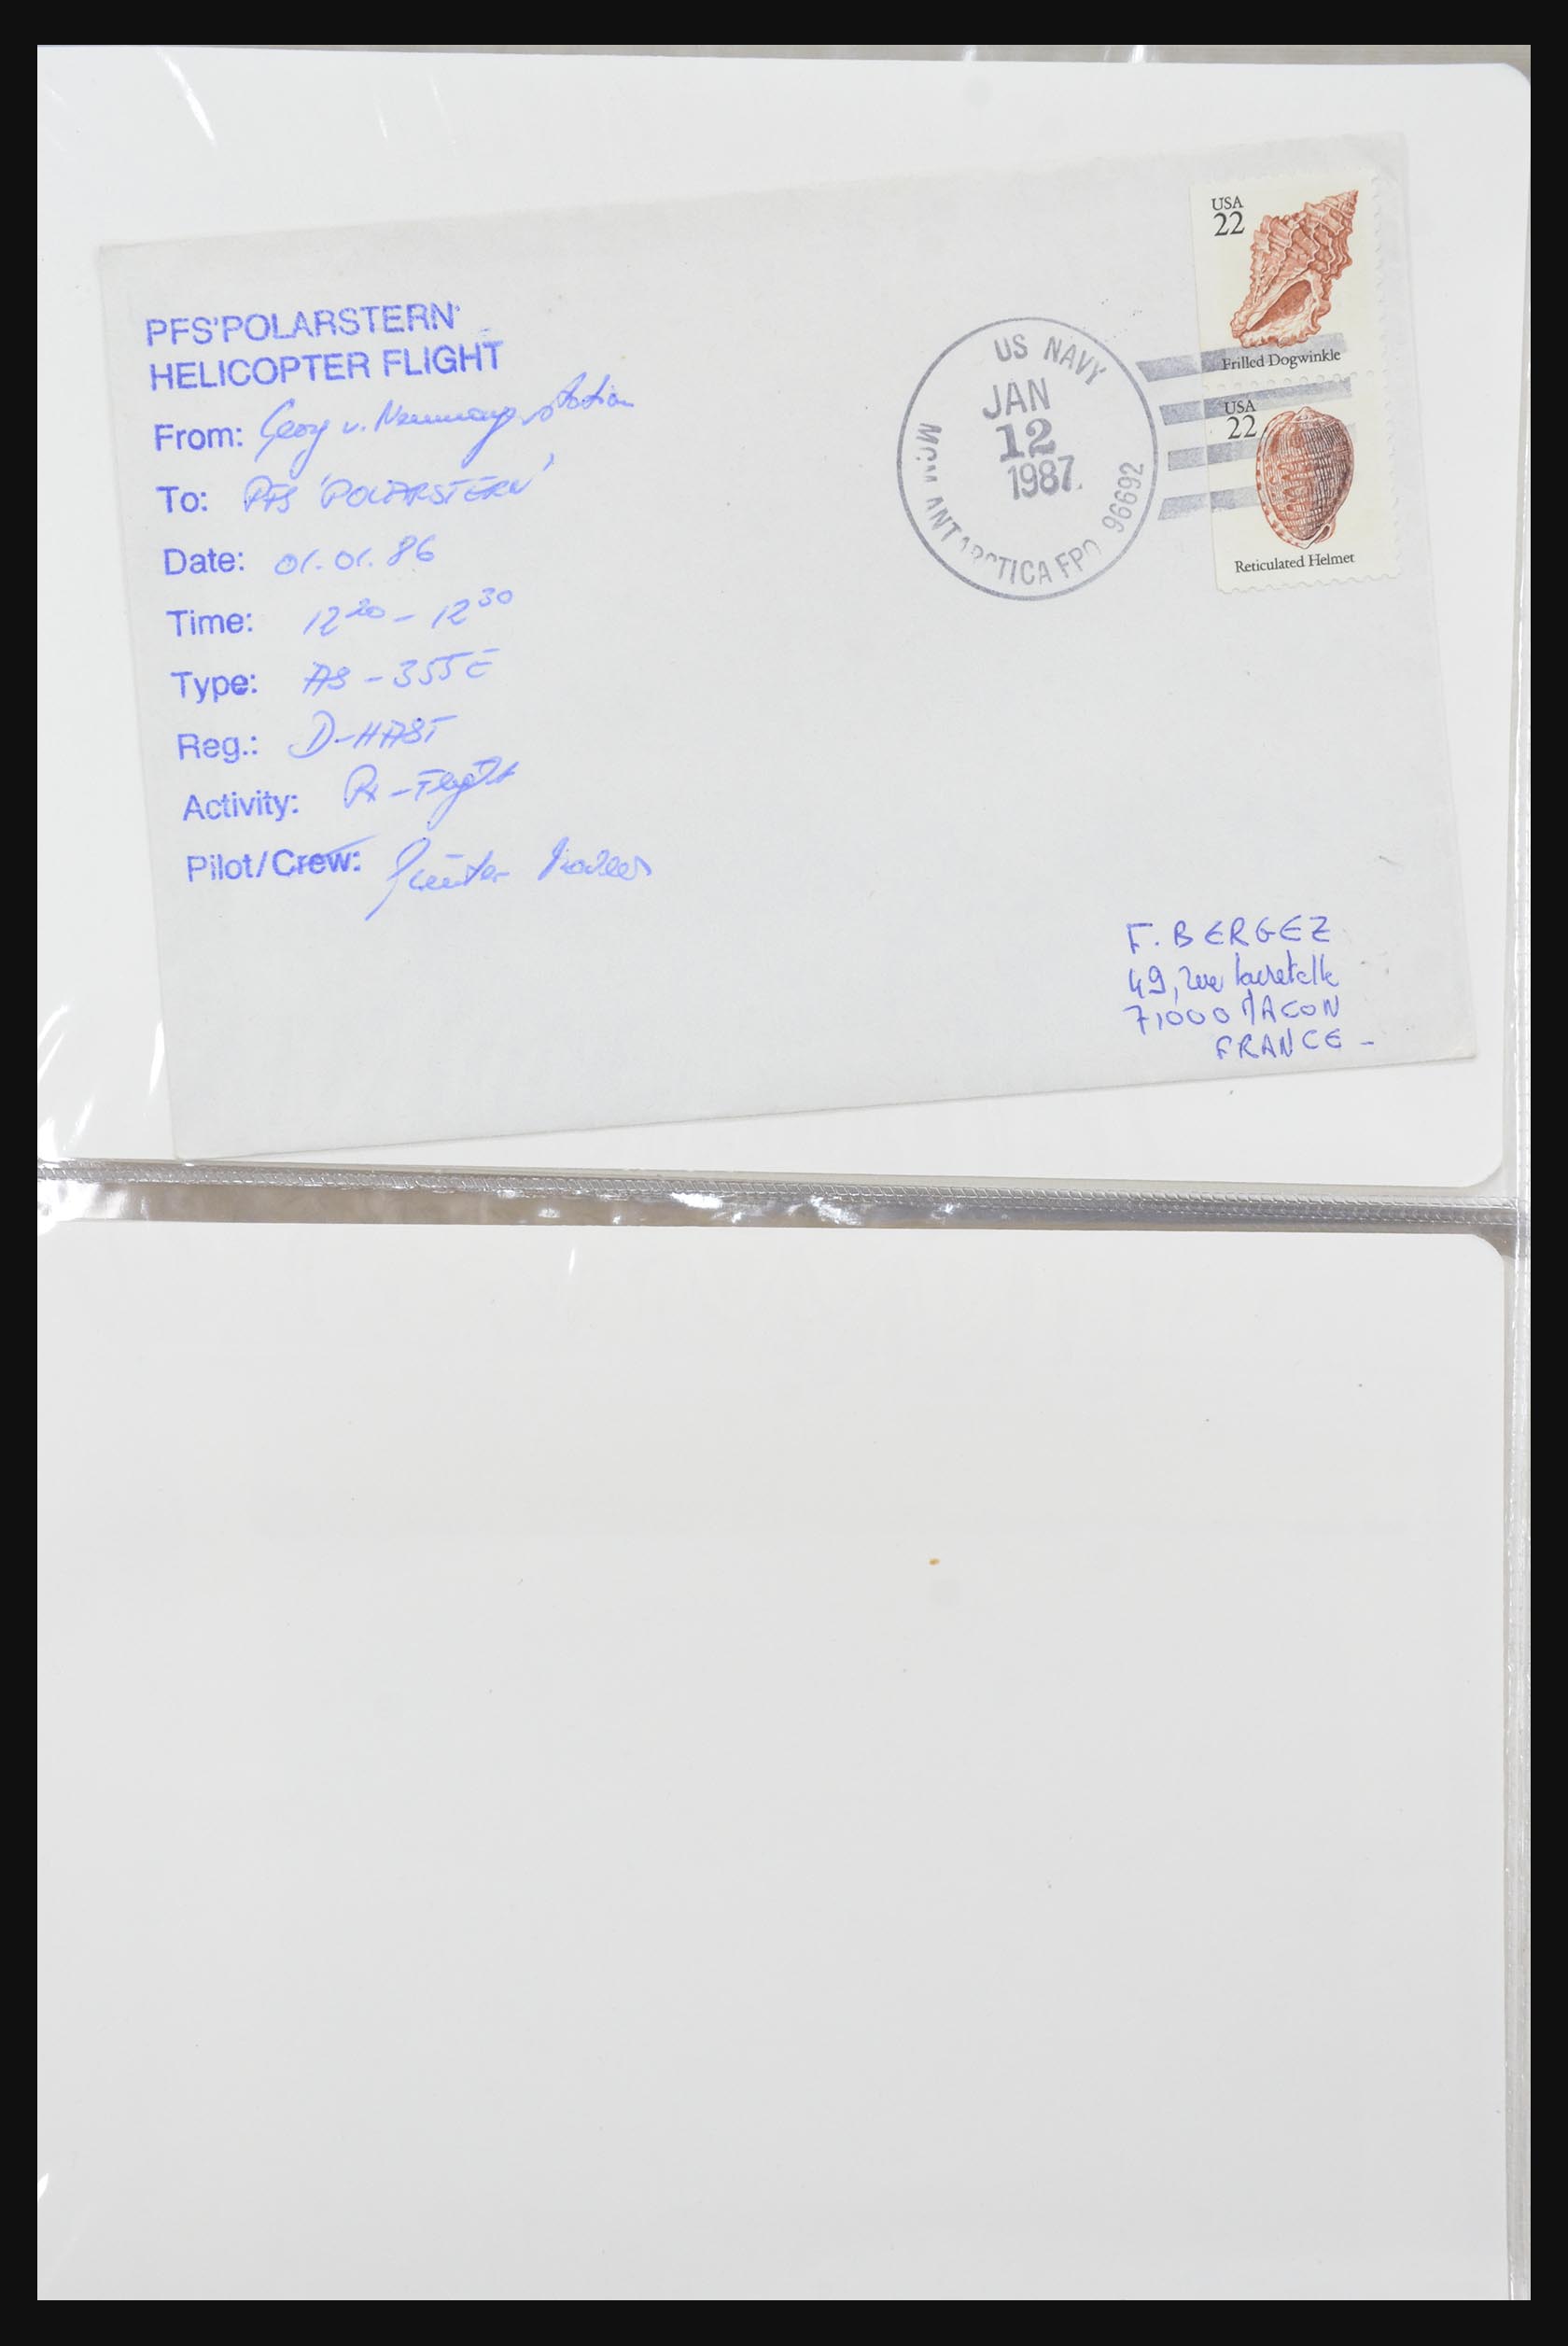 PFS'POLARSTERN'
HELICOPTER FLIGHT
From: Georg v. Neumayer station
To: PFS 'POLARSTERN'
Date: 01.01.86
Time: 12 20 - 12 30
Type: AS - 355 E
Reg.: D-HAST
Activity: Flight
Pilot/Crew: Günter
US NAVY
JAN
12
1987
MCM ANTARCTICA FPO 96692
USA
22
Frilled Dogwinkle
USA
22
Reticulated Helmet
F. BERGEZ
49, rue lacretelle
71000 MACON
FRANCE -